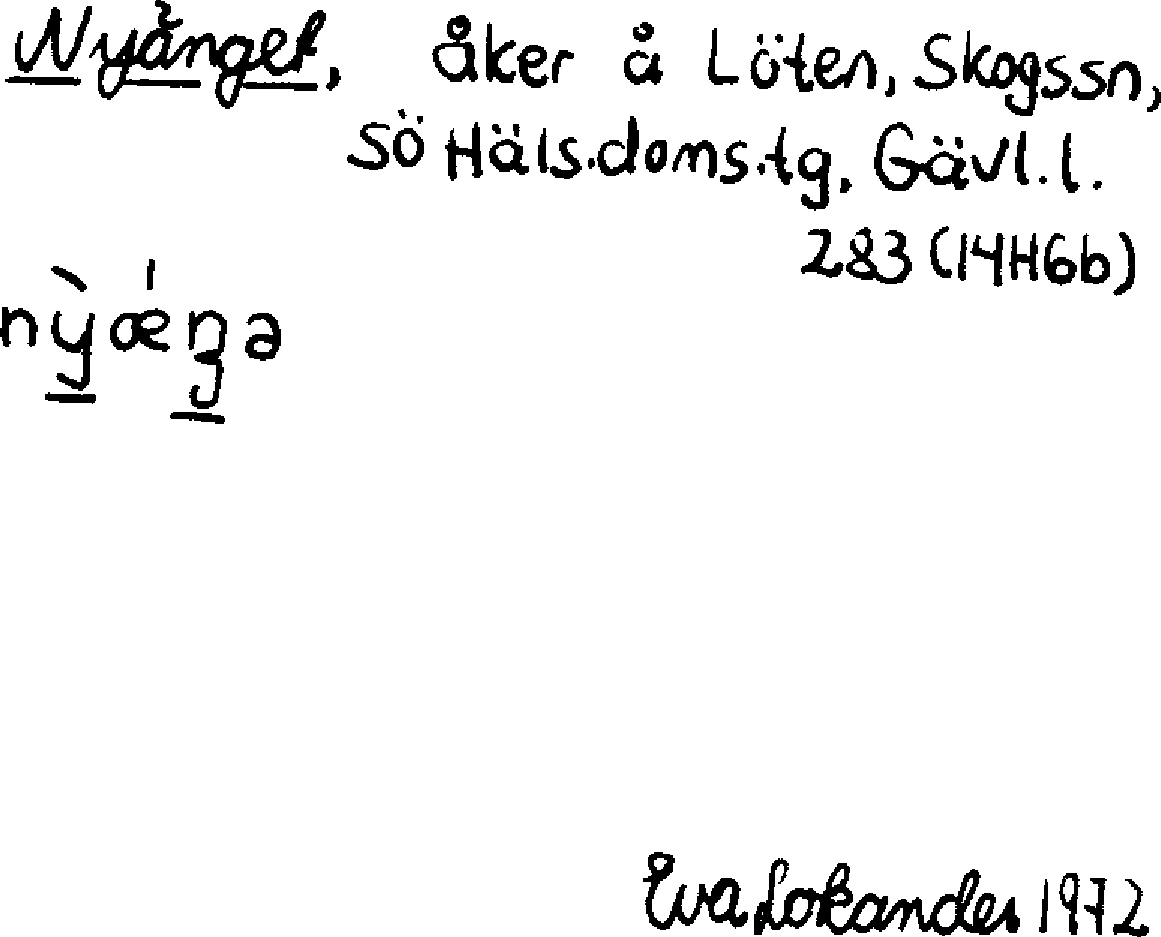 Nyänget, åker å Löten, Skogssn,
SÖ Häls.doms.tg. Gävl.l.
283 (14H6b)
nỳǽŋə
Eva Lokander 1972